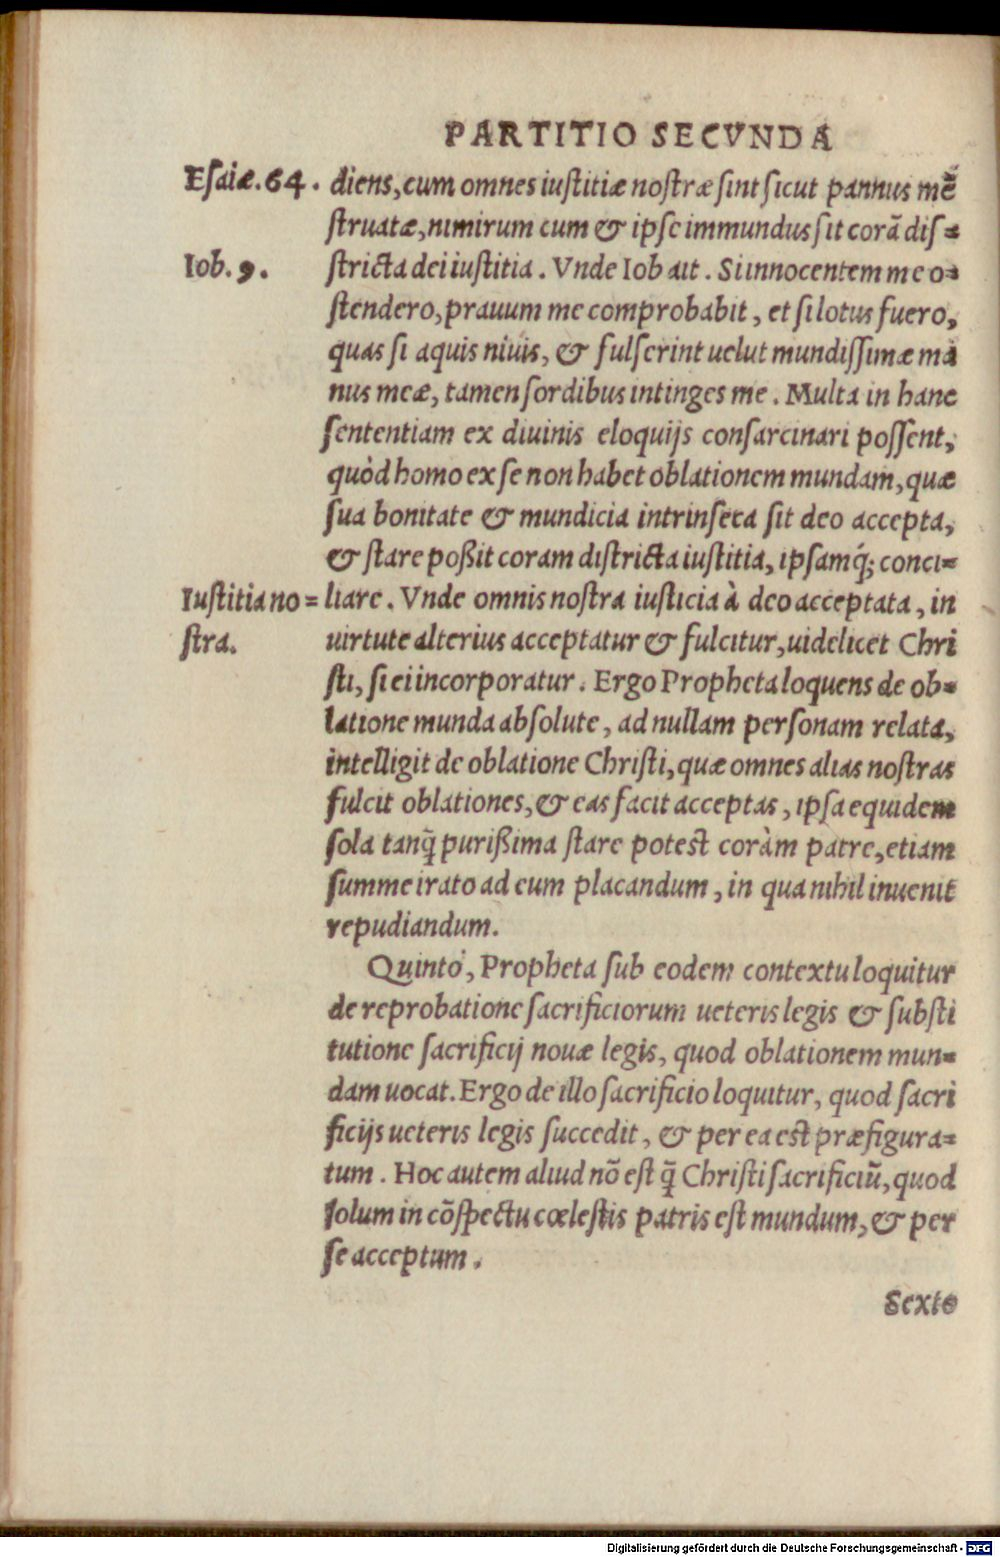 PARTITIO SECVNDA
Esaiæ. 64. diens, cum omnes iustitiæ nostræ sint sicut pannus mẽ
struatæ, nimirum cum & ipse immundus sit corã dis=
Iob. 9. stricta dei iustitia. Vnde Iob ait. Si innocentem me o=
stendero, prauum me comprobabit, et si lotus fuero,
quasi aquis niuis, & fulserint uelut mundissimæ ma
nus meæ, tamen sordibus intinges me. Multa in hanc
sententiam ex diuinis eloquijs consarcinari possent,
quòd homo ex se non habet oblationem mundam, quæ
sua bonitate & mundicia intrinseca sit deo accepta,
& stare poßit coram districta iustitia, ipsamq́; conci=
Iustitia no= liare. Vnde omnis nostra iusticia à deo acceptata, in
stra. uirtute alterius acceptatur & fulcitur, uidelicet Chri
sti, si ei incorporatur. Ergo Propheta loquens de ob=
latione munda absolute, ad nullam personam relata,
intelligit de oblatione Christi, quæ omnes alias nostras
fulcit oblationes, & eas facit acceptas, ipsa equidem
sola tanq̃ purißima stare potest coràm patre, etiam
summe irato ad eum placandum, in qua nihil inuenit
repudiandum.
Quintò, Propheta sub eodem contextu loquitur
de reprobatione sacrificiorum ueteris legis & substi
tutione sacrificij nouæ legis, quod oblationem mun=
dam uocat. Ergo de illo sacrificio loquitur, quod sacri
ficijs ueteris legis succedit, & per ea est præfigura=
tum. Hoc autem aliud nõ est q̃ Christi sacrificiũ, quod
solum in cõspectu cœlestis patris est mundum, & per
se acceptum.
Sexto
Digitalisierung gefördert durch die Deutsche Forschungsgemeinschaft - DFG